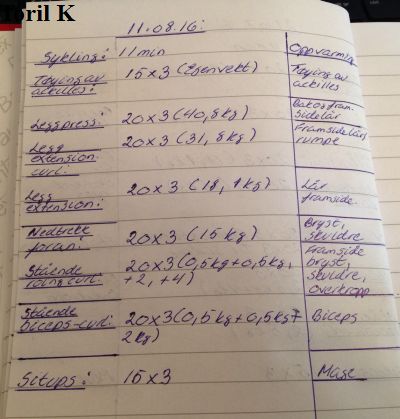 Toril K
11.08.16:
Sykling: 11 min Oppvarming
Tøying av 15 x 3 (Egenvekt) Tøying av
achilles: achilles
Leggpress: 20 x 3 (40,8kg) Bak og fram-
sidelår
Legg 20 x 3 (31,8kg) Framside lår/
extension rumpe
curl:
Legg 20 x 3 (18,1kg) Lår
extension: framside
Nedtrekk 20 x 3 (15kg) Bryst,
foran: skuldre
Stående 20 x 3 (0,5kg + 0,5kg, Framside
curl: +2, +4) bryst,
skuldre,
overkropp
Stående 20 x 3 (0,5kg + 0,5kg + Biceps
biceps-curl: 2kg)
Situps: 15 x 3 Mage